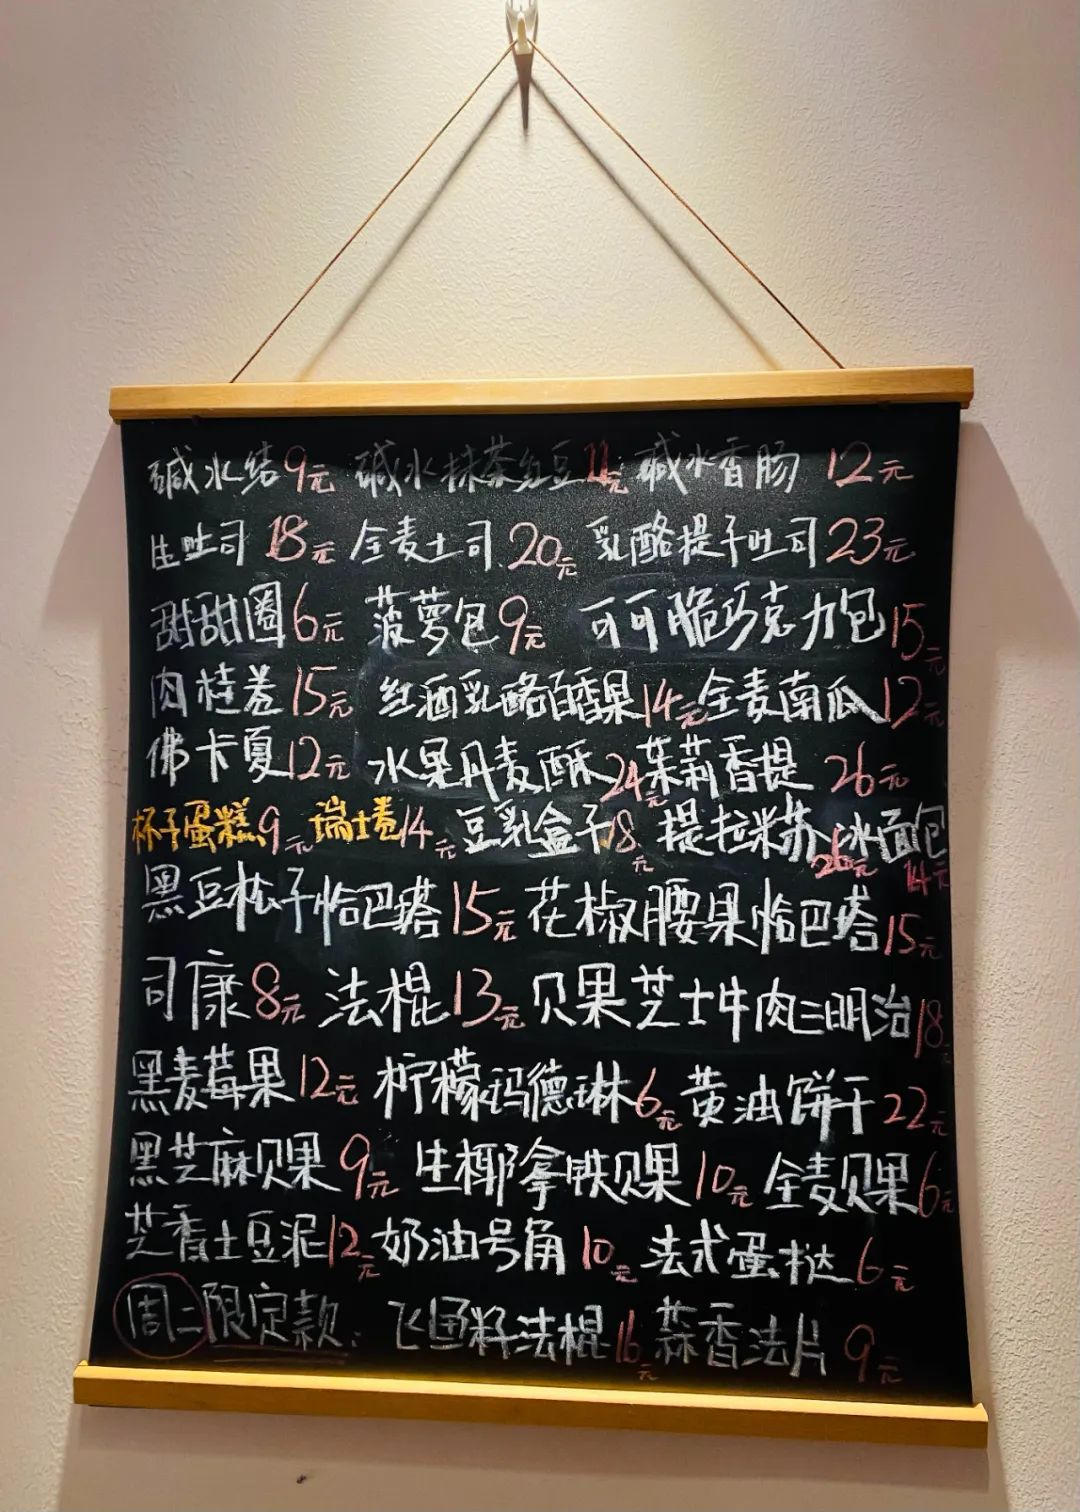 碱水结9元 碱水抹茶红豆11元 碱水香肠 12元
生吐司 18元 全麦土司 20元 乳酪提子吐司23元
甜甜圈6元 菠萝包9元 可可脆巧克力包15元
肉桂卷15元 红酒乳酪百香果14元 全麦南瓜12元
佛卡夏12元 水果丹麦酥24元 茉莉香提 26元
杯子蛋糕9元 瑞士卷14元 豆乳盒子18元 提拉米苏26元 冰面包14元
黑豆松子恰巴塔15元 花椒腰果恰巴塔15元
司康8元 法棍13元 贝果芝士牛肉三明治18元
黑麦莓果12元 柠檬玛德琳6元 黄油饼干22元
黑芝麻贝果 9元 生椰拿铁贝果10元 全麦贝果6元
芝香土豆泥12元 奶油号角 10元 法式蛋挞6元
周二限定款: 飞通籽法棍16元 蒜香法片 9元